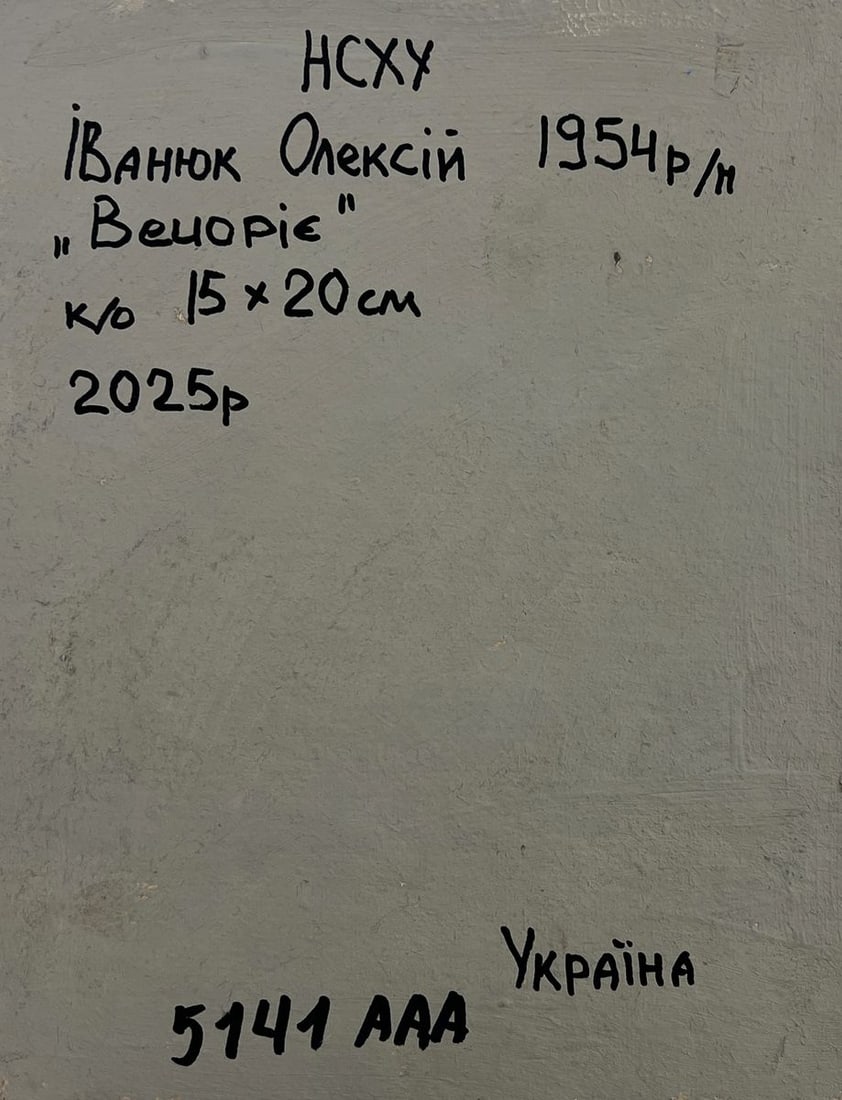 НСХУ
Іванюк Олексій 1954р/н
„Вечоріє"
к/о 15 x 20 см
2025р
Україна
5141 AAA